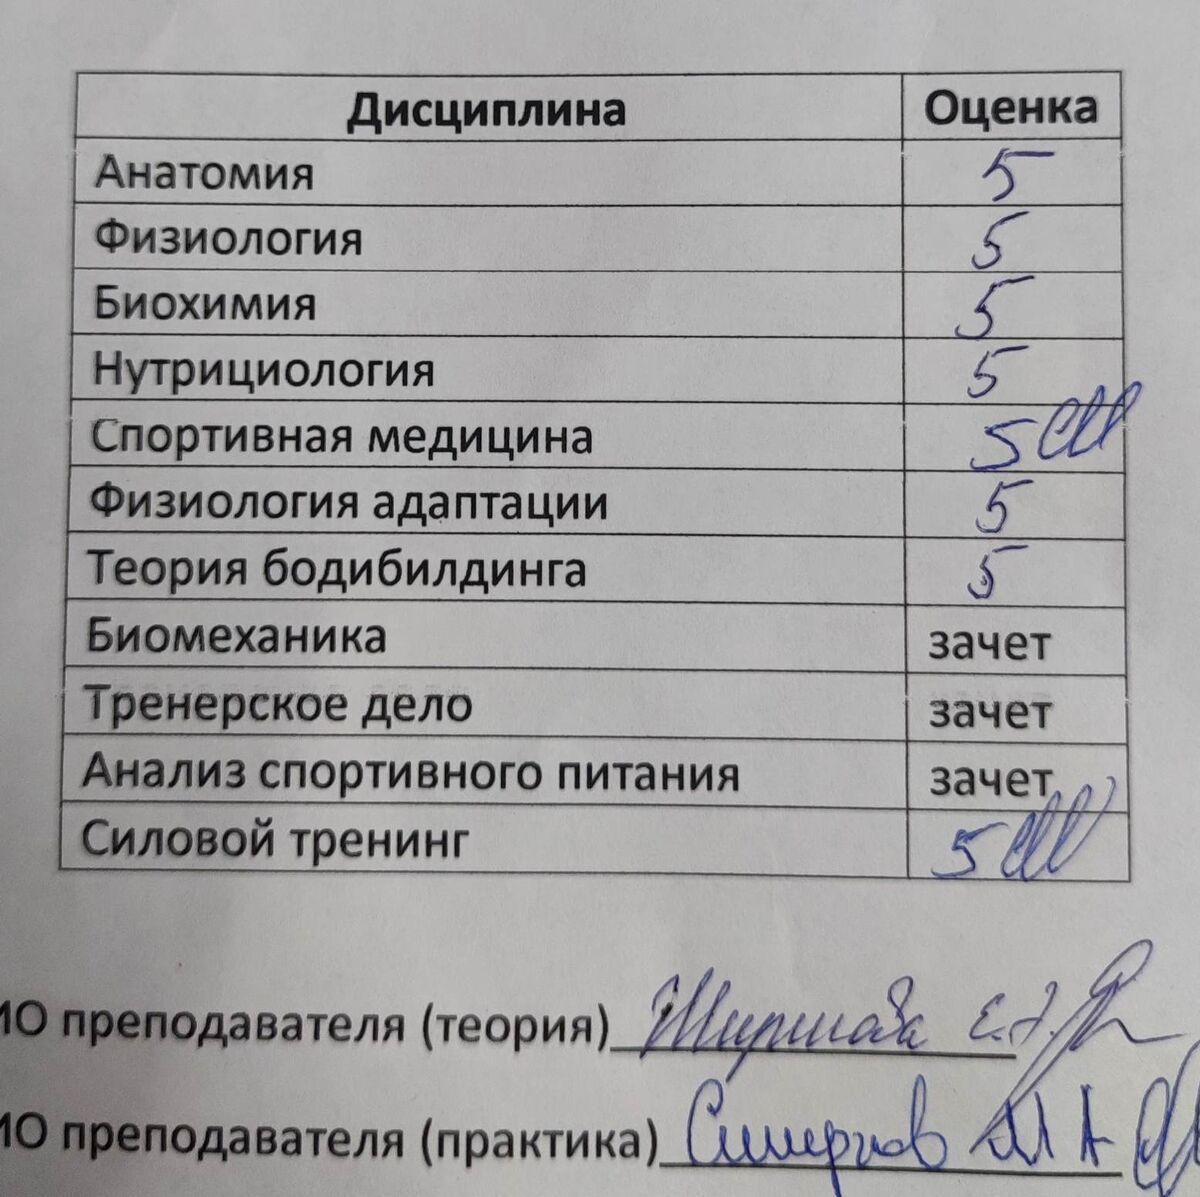 Дисциплина Оценка
Анатомия 5
Физиология 5
Биохимия 5
Нутрициология 5
Спортивная медицина 5
Физиология адаптации 5
Теория бодибилдинга 5
Биомеханика зачет
Тренерское дело зачет
Анализ спортивного питания зачет
Силовой тренинг 5
ИО преподавателя (теория)
ИО преподавателя (практика) Смирнов М А